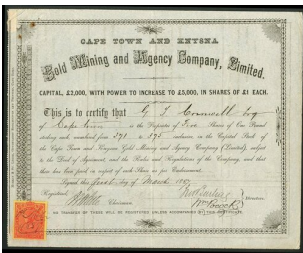 CAPE TOWN AND KNYSNA
Gold Mining and Agency Company, Limited.
CAPITAL, £2,000, WITH POWER TO INCREASE TO £5,000, IN SHARES OF £1 EACH.
This is to certify that G. T. Cornwell Esq
of Cape Town is the Proprietor of Five Shares of One Pound
each, numbered from 371 to 375 inclusive in the Capital Stock of
the Cape Town and Knysna Gold Mining and Agency Company (Limited), subject
to the Deed of Agreement, and the Rules and Regulations of the Company, and that
there has been paid in respect of each Share, as per Endorsement.
Signed this first day of March 188
Registered,
Chairman.
Directors.
NO TRANSFER OF THESE WILL BE REGISTERED UNLESS ACCOMPANIED BY THIS CERTIFICATE.